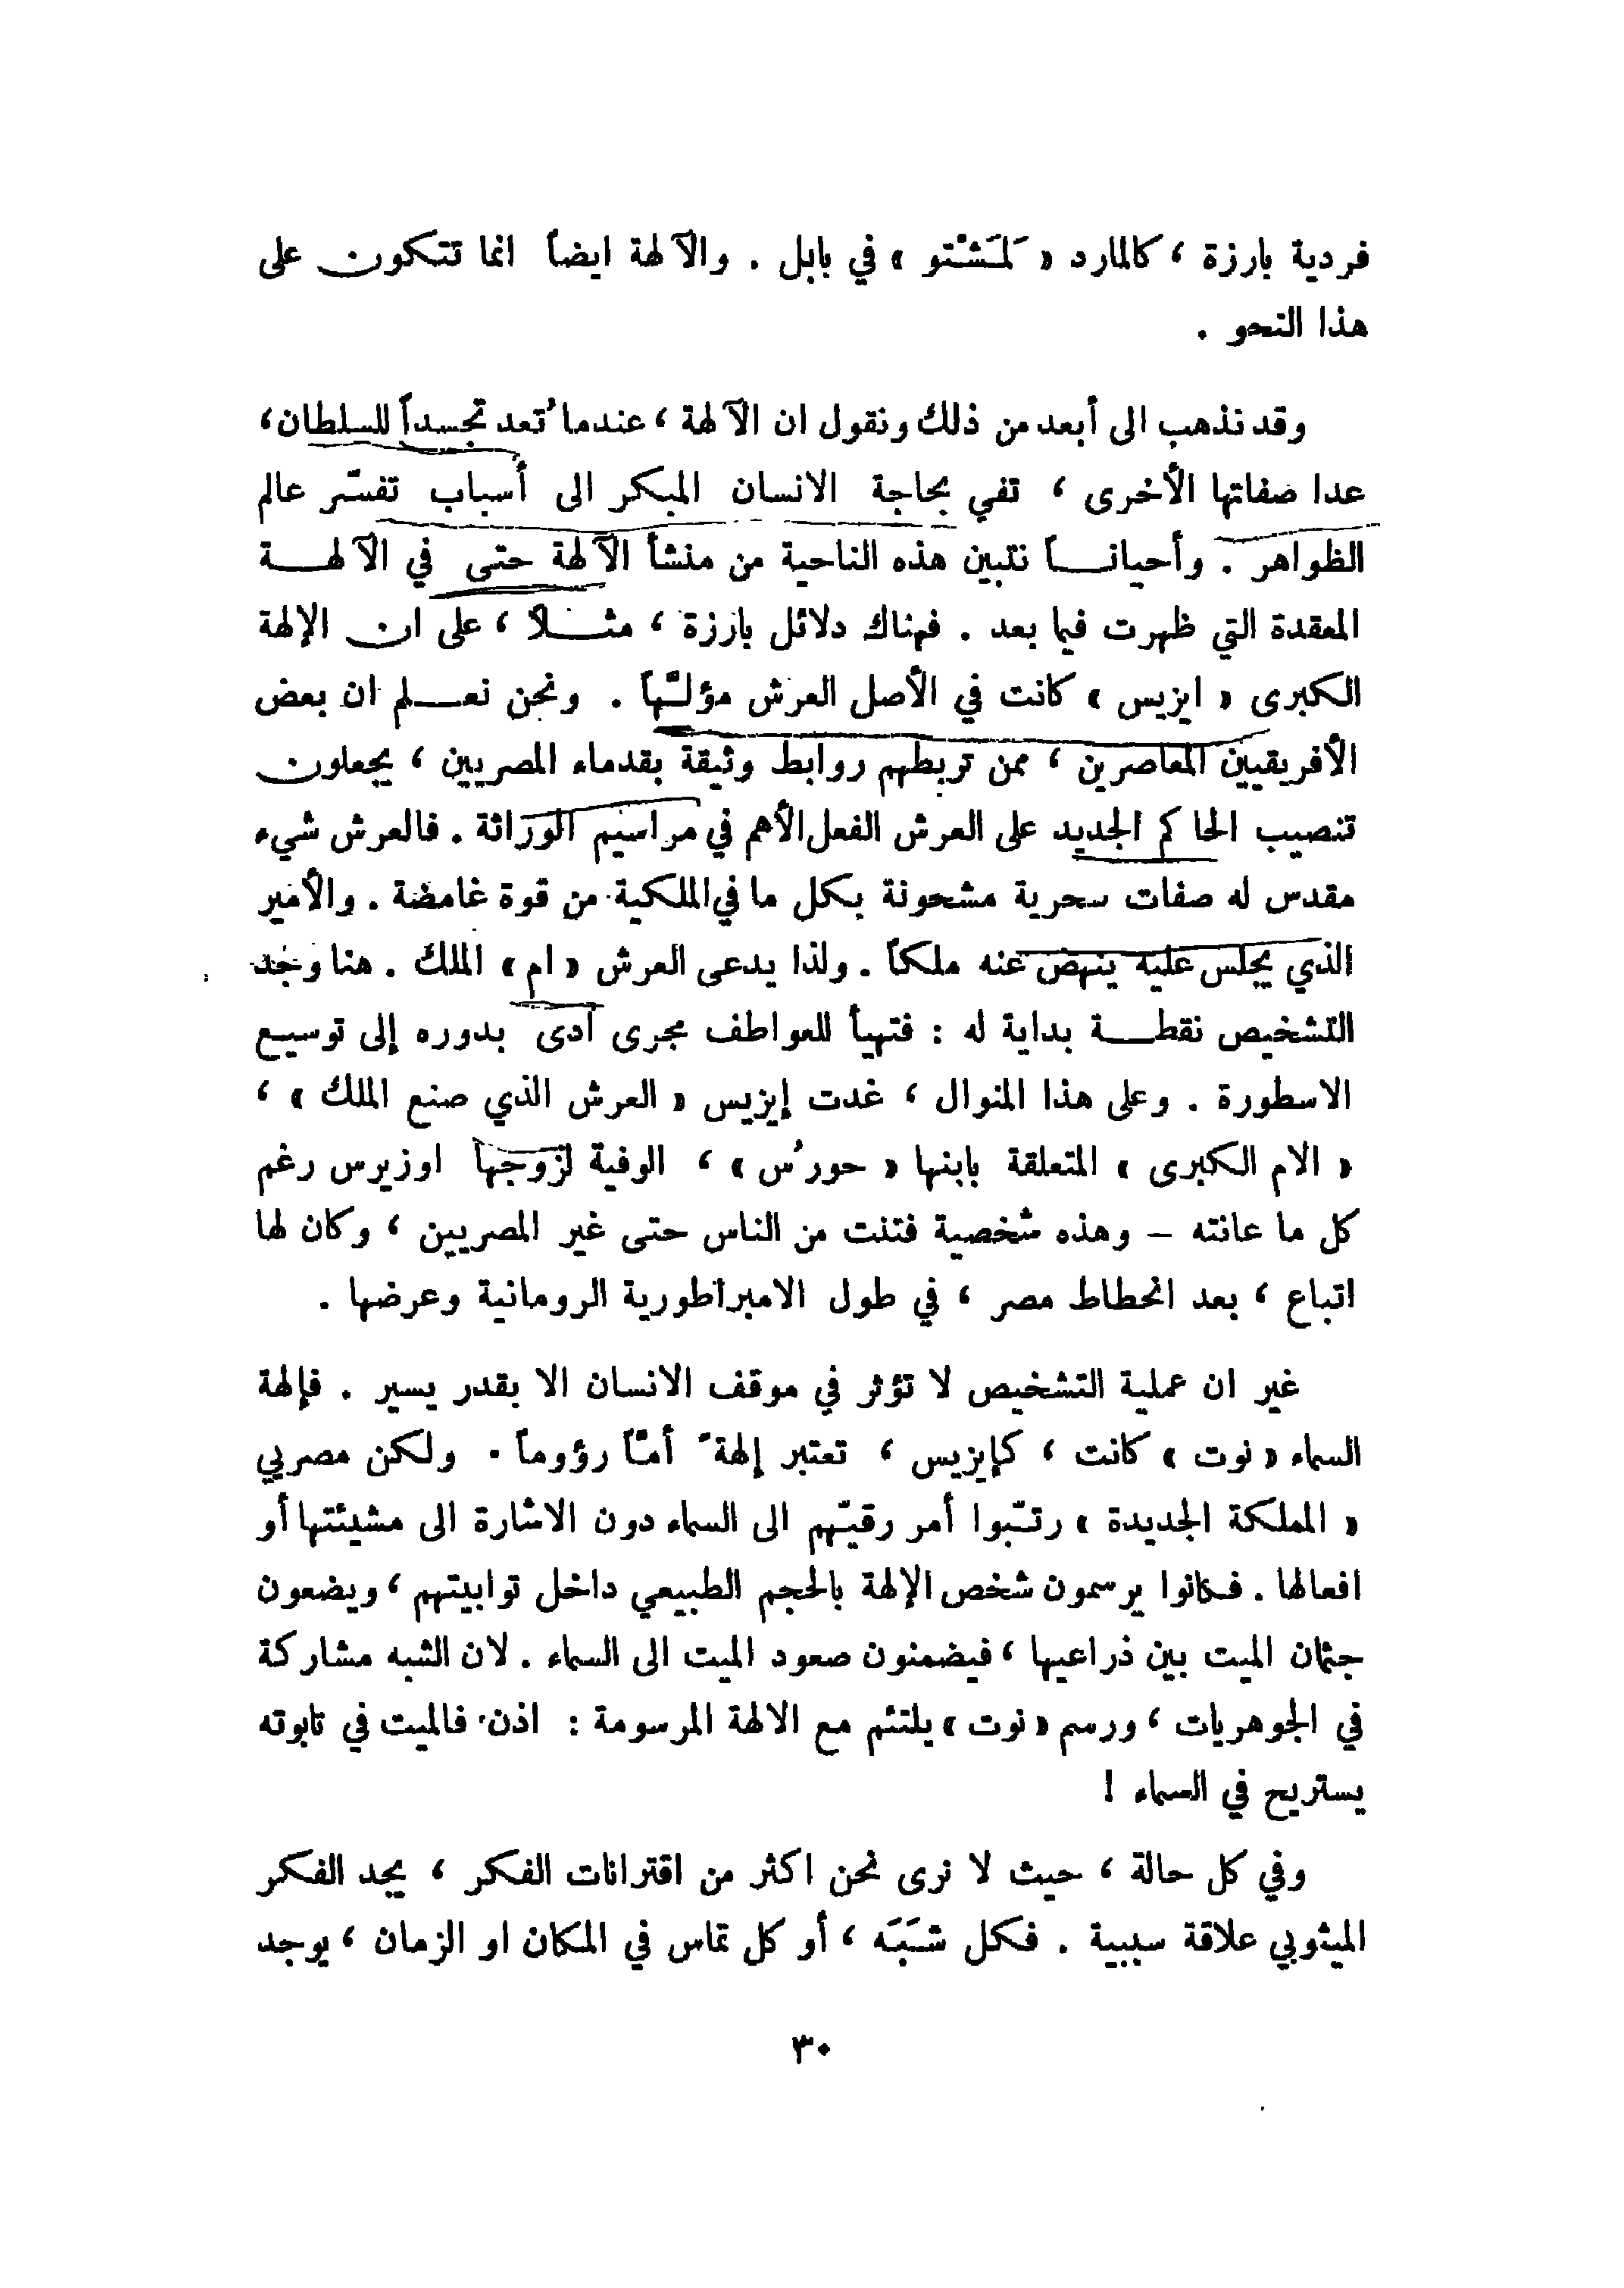 فردية بارزة ، كالمارد « لَمَشْتو » في بابل . والآلهة ايضاً انما تتكون على
هذا النحو .
وقد نذهب الى أبعد من ذلك ونقول ان الآلهة ، عندما تُعد تجسداً للسلطان ،
عدا صفاتها الأخرى ، تفي بحاجة الانسان المبكر الى أسباب تفسّر عالم
الظواهر . وأحيانـــاً نتبين هذه الناحية من منشأ الآلهة حتى في الآلهـــة
المعقدة التي ظهرت فيما بعد . فهناك دلائل بارزة ، مثـــلاً ، على ان الإلهة
الكبرى « ايزيس » كانت في الأصل العرش مؤلـَّهاً . ونحن نعـــلم ان بعض
الأفريقيين المعاصرين ، ممن تربطهم روابط وثيقة بقدماء المصريين ، يجعلون
تنصيب الحاكم الجديد على العرش الفعل الأهم في مراسيم الوراثة . فالعرش شيء
مقدس له صفات سحرية مشحونة بكل ما في الملكية من قوة غامضة . والأمير
الذي يجلس عليه ينهض عنه ملكاً . ولذا يدعى العرش « ام » الملك . هنا وجد
التشخيص نقطـــة بداية له : فتهيأ للعواطف مجرى أدى بدوره إلى توسيع
الاسطورة . وعلى هذا المنوال ، غدت إيزيس « العرش الذي صنع الملك » ،
« الام الكبرى » المتعلقة بابنها « حورُس » ، الوفية لزوجها اوزيرس رغم
كل ما عانته – وهذه شخصية فتنت من الناس حتى غير المصريين ، وكان لها
اتباع ، بعد انحطاط مصر ، في طول الامبراطورية الرومانية وعرضها .
غير ان عملية التشخيص لا تؤثر في موقف الانسان الا بقدر يسير . فإلهة
السماء « نوت » كانت ، كإيزيس ، تعتبر إلهةً أمّاً رؤوماً . ولكن مصريي
« المملكة الجديدة » رتـّبوا أمر رقيـّهم الى السماء دون الاشارة الى مشيئتها أو
افعالها . فكانوا يرسمون شخص الإلهة بالحجم الطبيعي داخل توابيتهم ، ويضعون
جثمان الميت بين ذراعيها ، فيضمنون صعود الميت الى السماء . لان الشبه مشاركة
في الجوهريات ، ورسم « نوت » يلتئم مع الالهة المرسومة : اذن فالميت في تابوته
يستريح في السماء !
وفي كل حالة ، حيث لا نرى نحن اكثر من اقترانات الفكر ، يجد الفكر
الميثوبي علاقة سببية . فكل شَبَه ، أو كل تماس في المكان او الزمان ، يوجد
٣٠